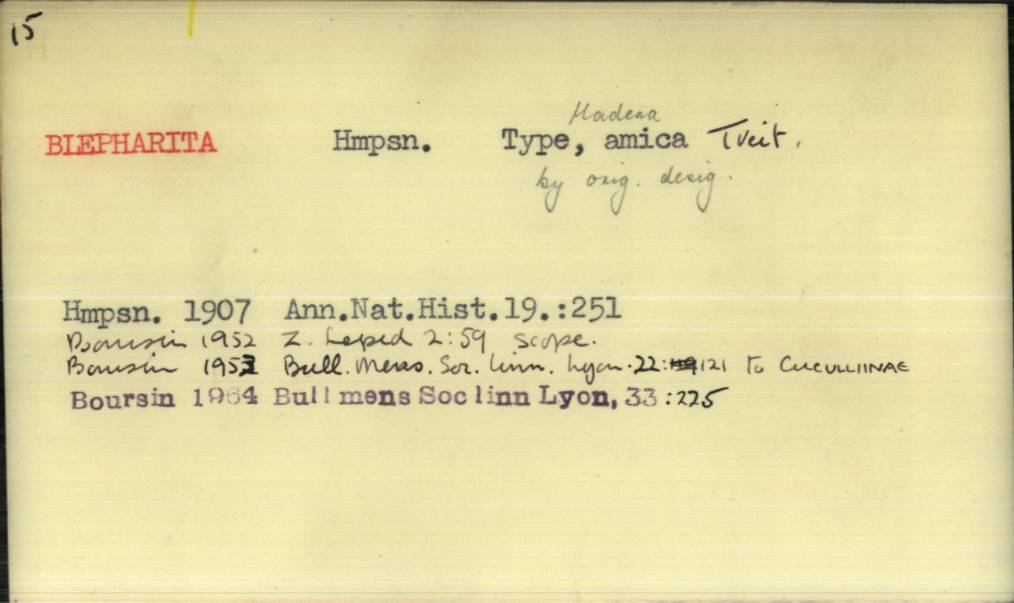 15
Hadena
BLEPHARITA Hmpsn. Type, amica Tveit.
by orig. desig.
Hmpsn. 1907 Ann.Nat.Hist.19.:251
Boursin 1952 Z. Lepid 2:59 scope.
Boursin 1953 Bull. Mens. Soc. linn. Lyon. 22: 121 to CUCULLIINAE
Boursin 1964 Bull mens Soc linn Lyon, 33:225